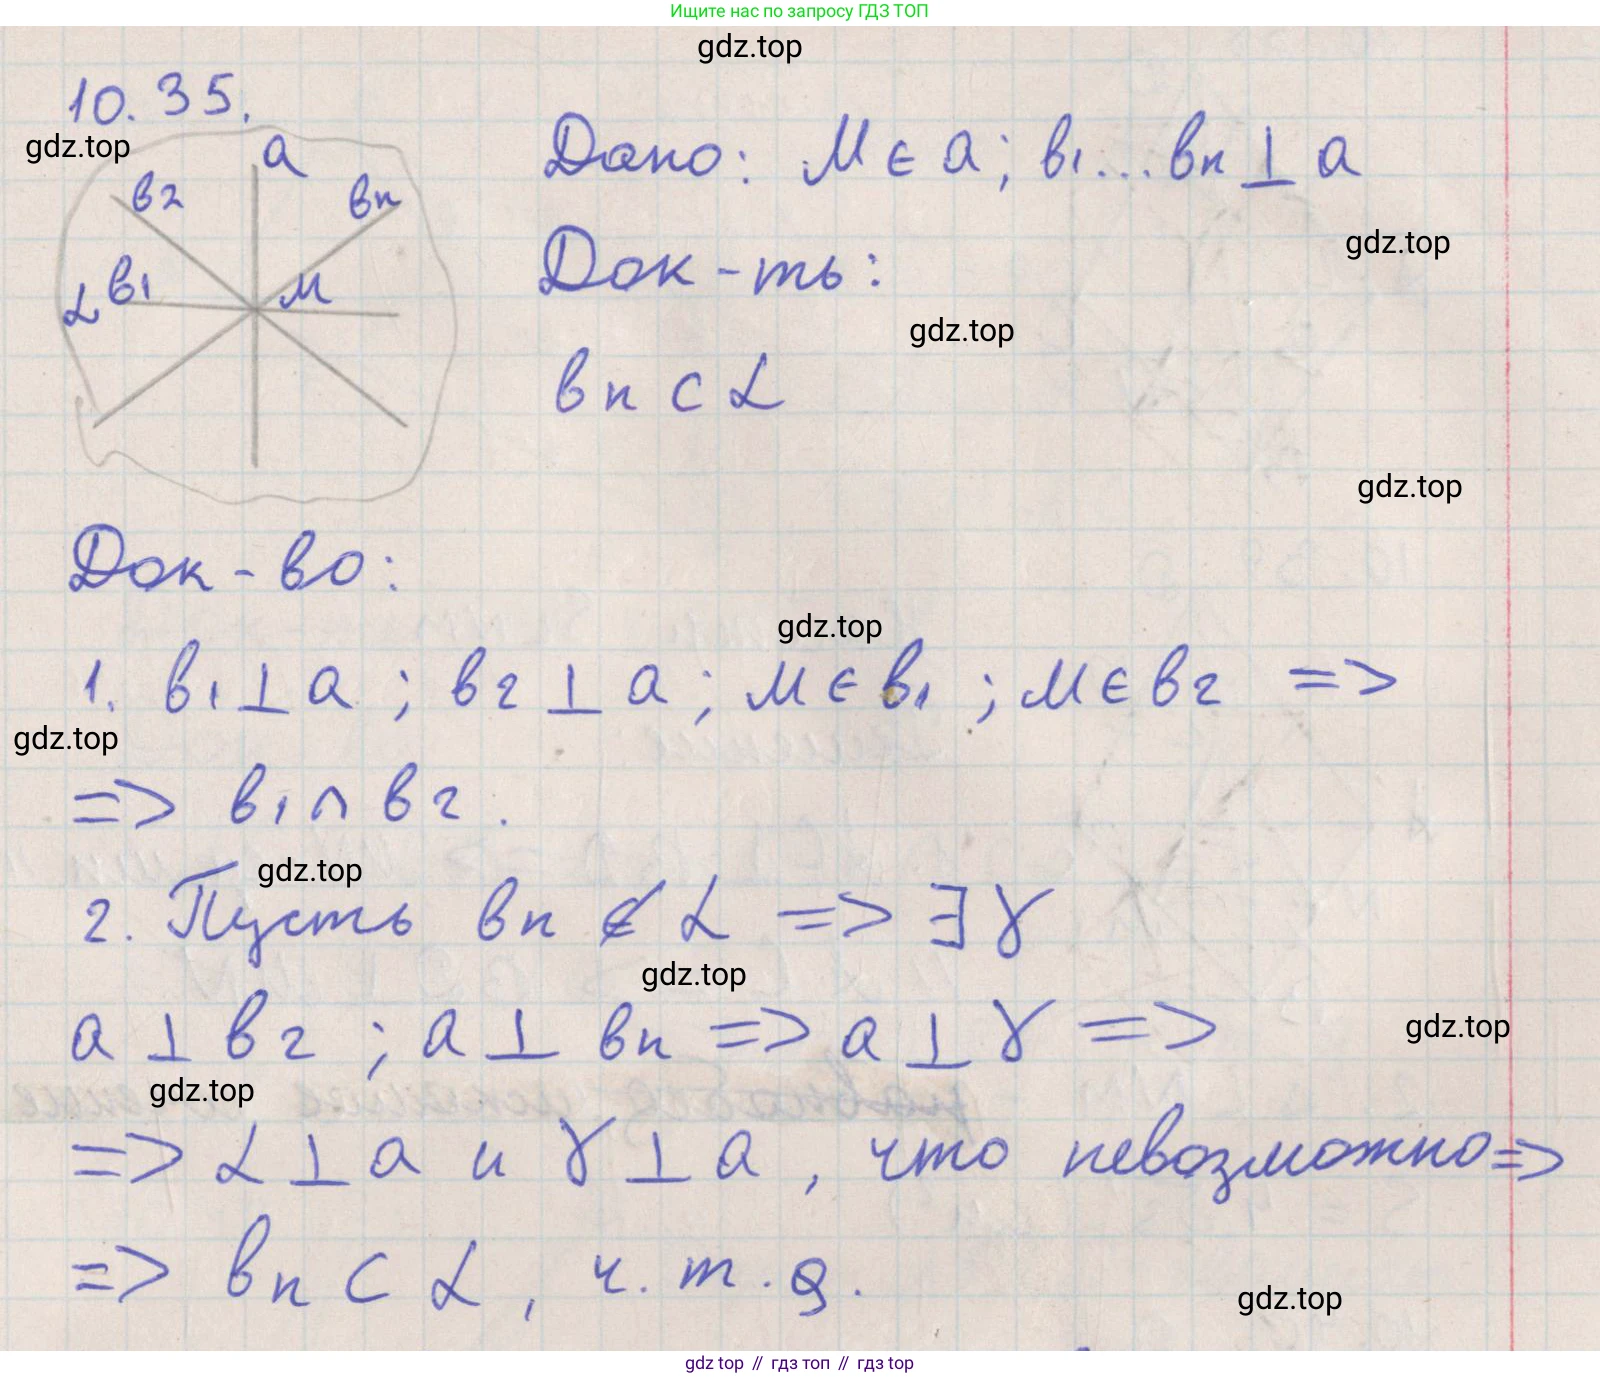 Ищите нас по запросу ГДЗ ТОП
gdz.top
10.35.
gdz.top
a
в2
вn
α
в1
M
Дано: M ∈ a; в1...вn ⊥ a
gdz.top
Док-ть:
gdz.top
вn ⊂ α
gdz.top
Док-во:
gdz.top
1. в1 ⊥ a ; в2 ⊥ a ; M ∈ в1 ; M ∈ в2 =>
gdz.top
=> в1 ∩ в2 .
gdz.top
2. Пусть вn ∉ α => ∃ γ
gdz.top
a ⊥ в2 ; a ⊥ вn => a ⊥ γ =>
gdz.top
gdz.top
=> α ⊥ a и γ ⊥ a , что невозможно =>
=> вn ⊂ α , ч.т.д.
gdz.top
gdz top // гдз топ // gdz top